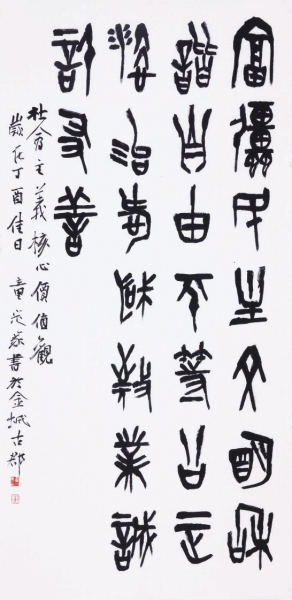 富彊民主文明和
諧自由平等公正
灋治愛國敬業誠
信友善
社會主義核心價值觀
歲在丁酉佳日 童家書於金城古郡